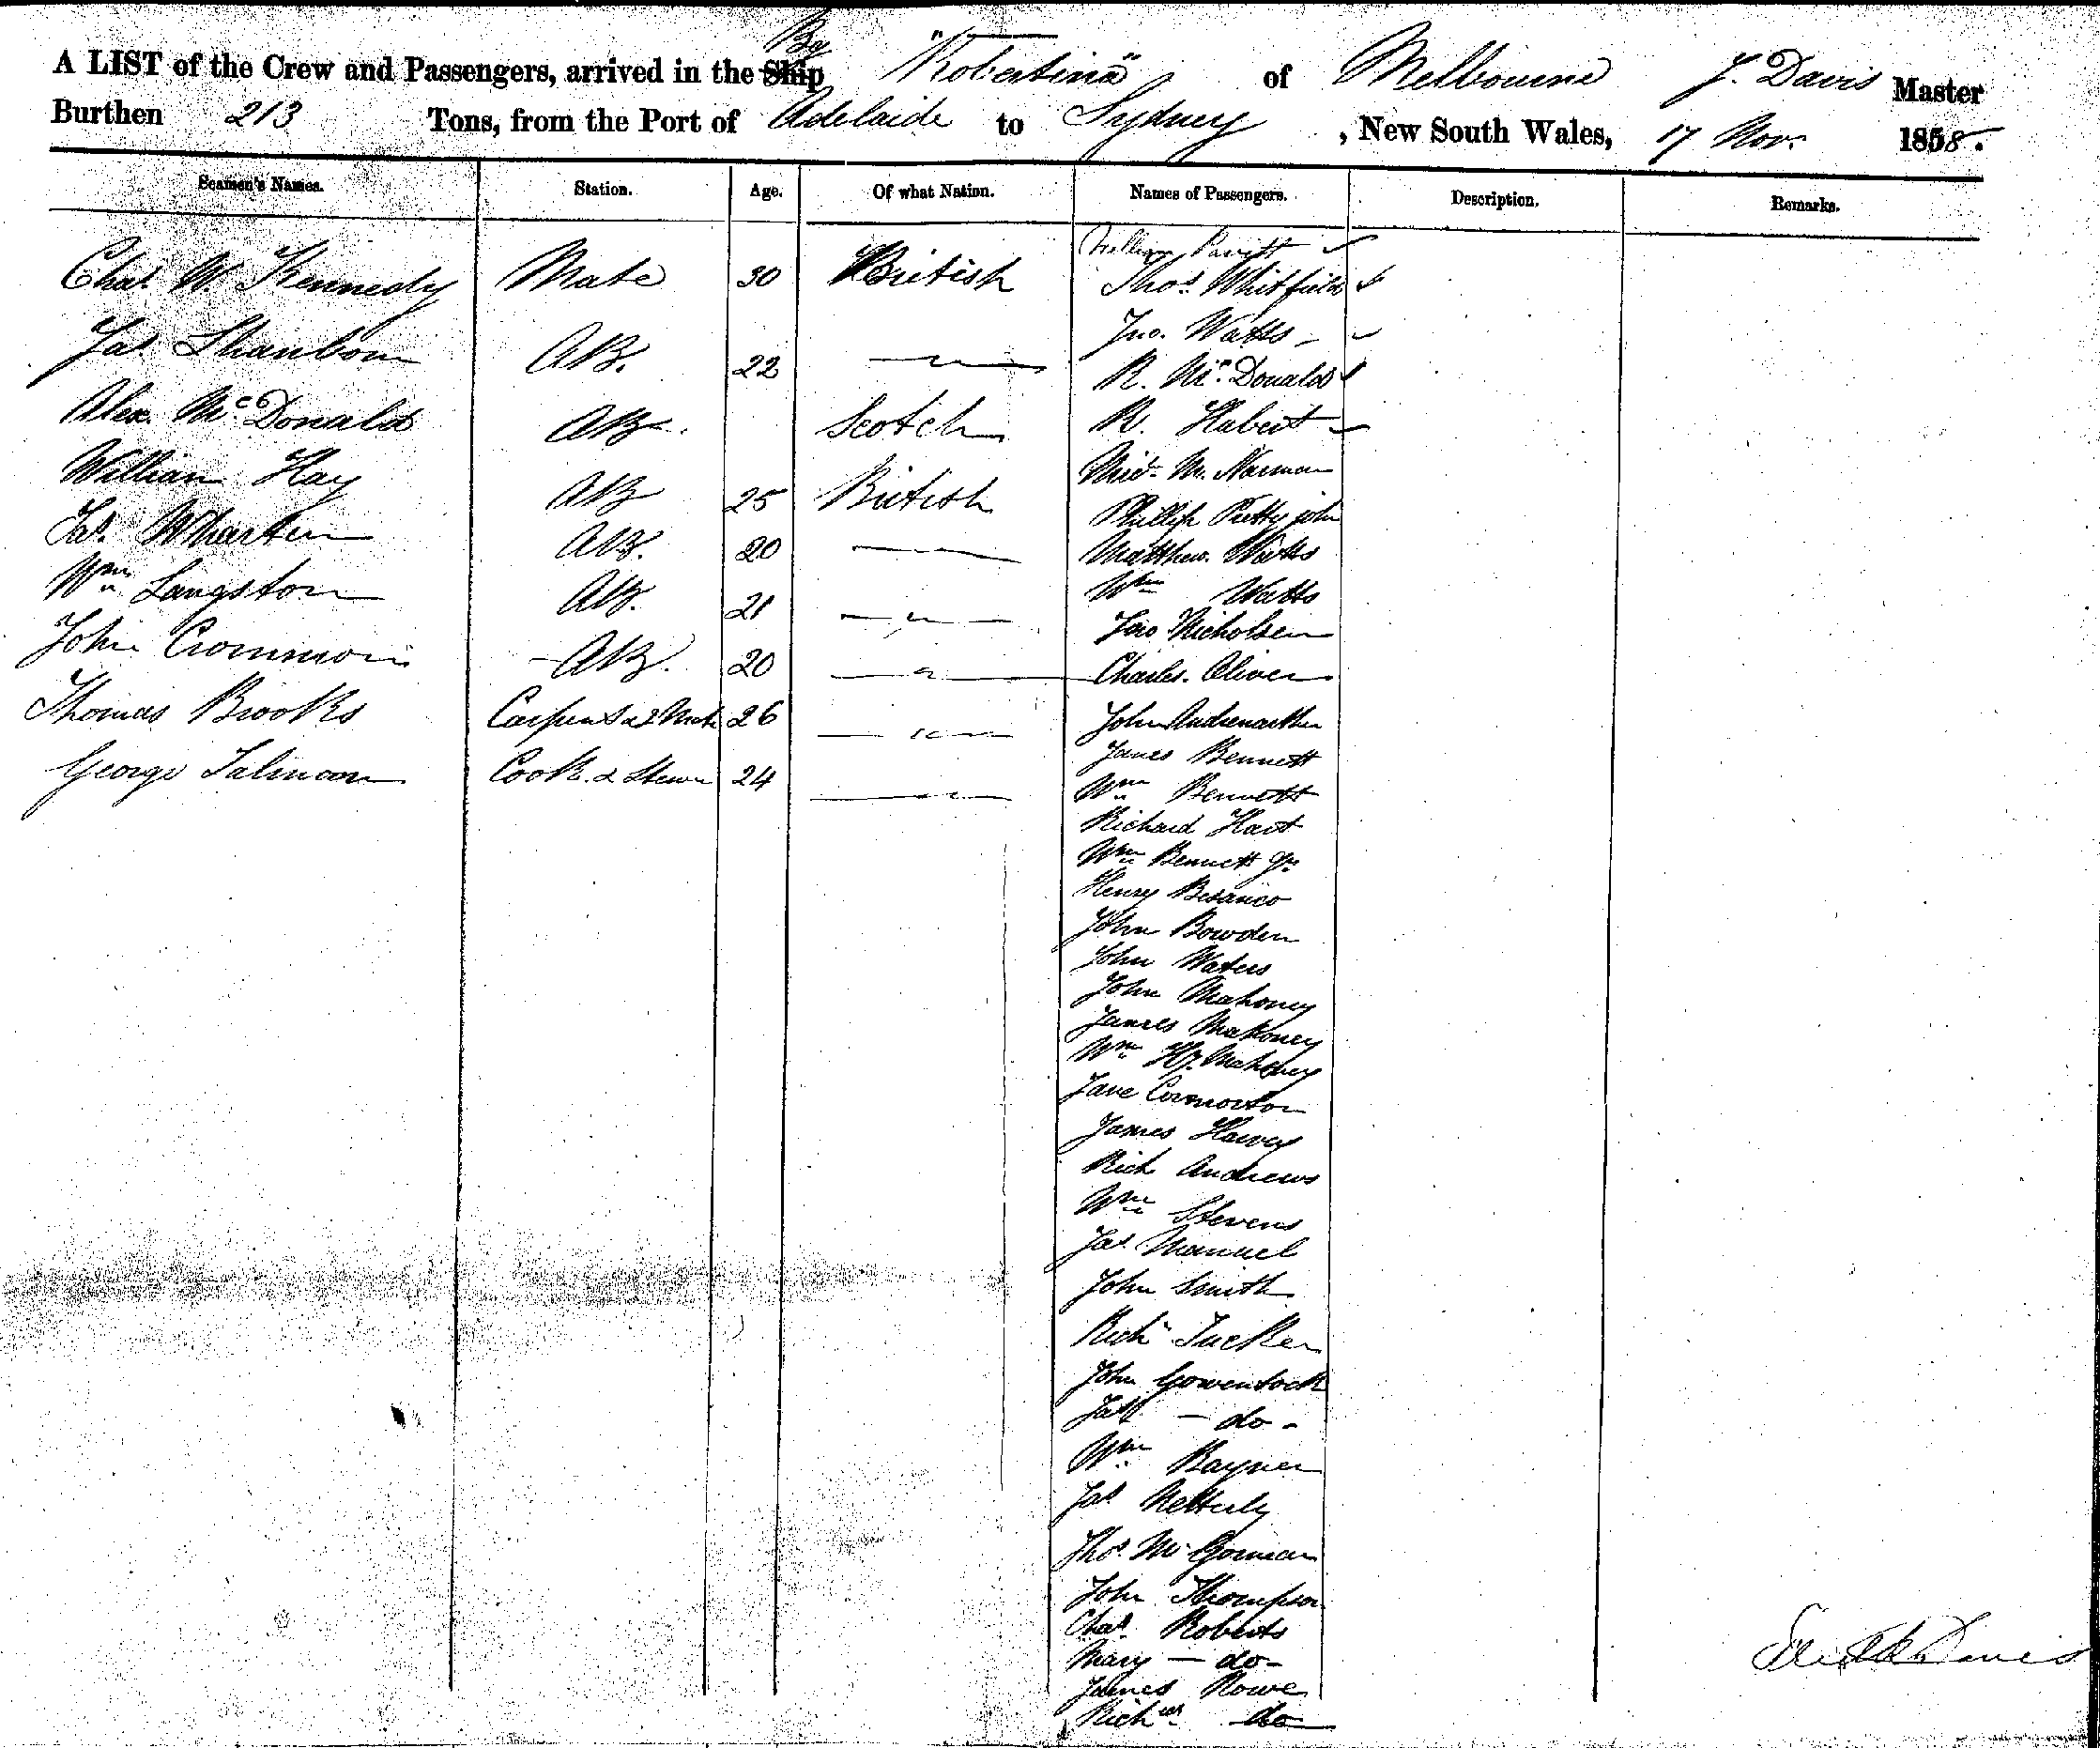 A LIST of the Crew and Passengers, arrived in the Ship Bg "Robertina" of Melbourne J. Davis Master
Burthen 213 Tons, from the Port of Adelaide to Sydney, New South Wales, 17 Nov. 1858.
Seamen's Names. Station. Age. Of what Nation. Names of Passengers. Description. Remarks.
William
Chas W Kennedy Mate 30 British Thos Whitfield
Jno. Watts
Jas AB. 22 — " — R. McDonald
Alex. McDonald AB. Scotch R. Habert
William Hay AB 25 British M. Norman
Phillip Prettyjohn
Jas. Wharton AB. 20 — Matthew. Watts
Wm Langston AB. 21 — " — Wm Watts
Jno Nicholsen
John AB. 20 — " — Charles. Oliver
Thomas Brooks 26 — " — John
James Bennett
George Cook & 24 — " — Wm Bennett
Richard Hart
Wm Bennett Jr
Henry
John Bowden
John Waters
John Mahoney
James Mahoney
Wm Hy. Mahoney
Jane
James Harvey
Rich Andrews
Wm Stevens
Jas Manuel
John Smith
Richd Tucker
John Gowenlock
Jas — do —
Wm Rayner
Jas Netterly
Thos. McGorman
John Thompson
Chas. Roberts
Mary — do —
James Rowe
Richd do
Davis